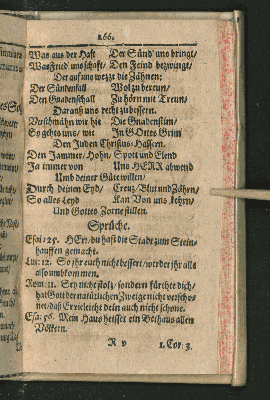 266.
Was aus der Haft Der Sünd' uns bringt/
Was Fried uns schaft/ Den Feind bezwingt/
Der auf uns wezzt die Zähnen:
Der Sündenfall Wol zu bereun/
Den Gnadenschall Zu hörn mit Treun/
Daran uns recht zu bessern.
Verschmähn wir hie Die Gnadenstim/
So gehts uns/ wie In GOttes Grim
Den Juden Christus-Hassern.
Den Jammer/ Hohn/ Spott und Elend
Ja immer von Uns HERR abwend
Und deiner Güte wollen.
Durch deinen Eyd/ Creuz/ Blut und Zähren/
So alles Leyd Kan Von uns kehrn/
Und Gottes Zorne stillen.
Sprüche.
Esai: 25. HErr/ du hast die Stadt zum Stein-
hauffen gemacht.
Luc: 12. So ihr euch nicht bessert/ werdet ihr alle
also umbkommen.
Rom: 11. Sey nicht stolz/ sondern fürchte dich/
hat Gott der natürlichen Zweige nicht verscho-
net/ daß Er vieleicht dein auch nicht schone.
Esa: 56. Mein Haus heisset ein Bethaus allen
Völkern.
R v 1. Cor. 3.